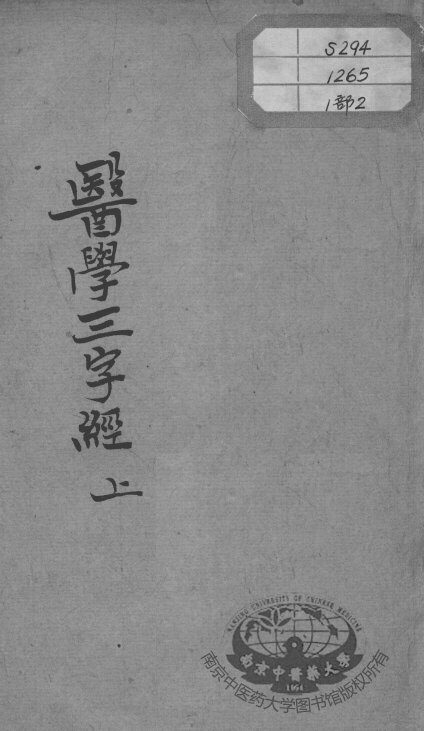 S294
1265
1部2
醫學三字經 上
NANJING UNIVERSITY OF CHINESE MEDICINE
南京中醫藥大學
1954
南京中医药大学图书馆版权所有